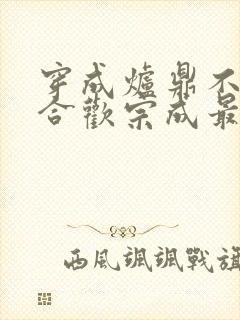 穿成爐鼎不
合歡宗成最
西風颯颯戰旗